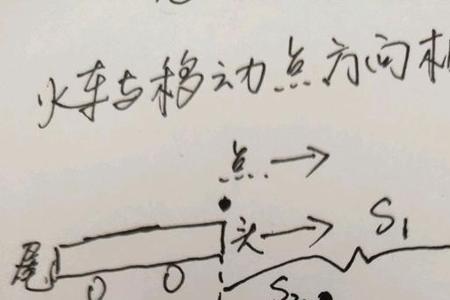 火车与移动点方向
点
头 S1
尾
S2